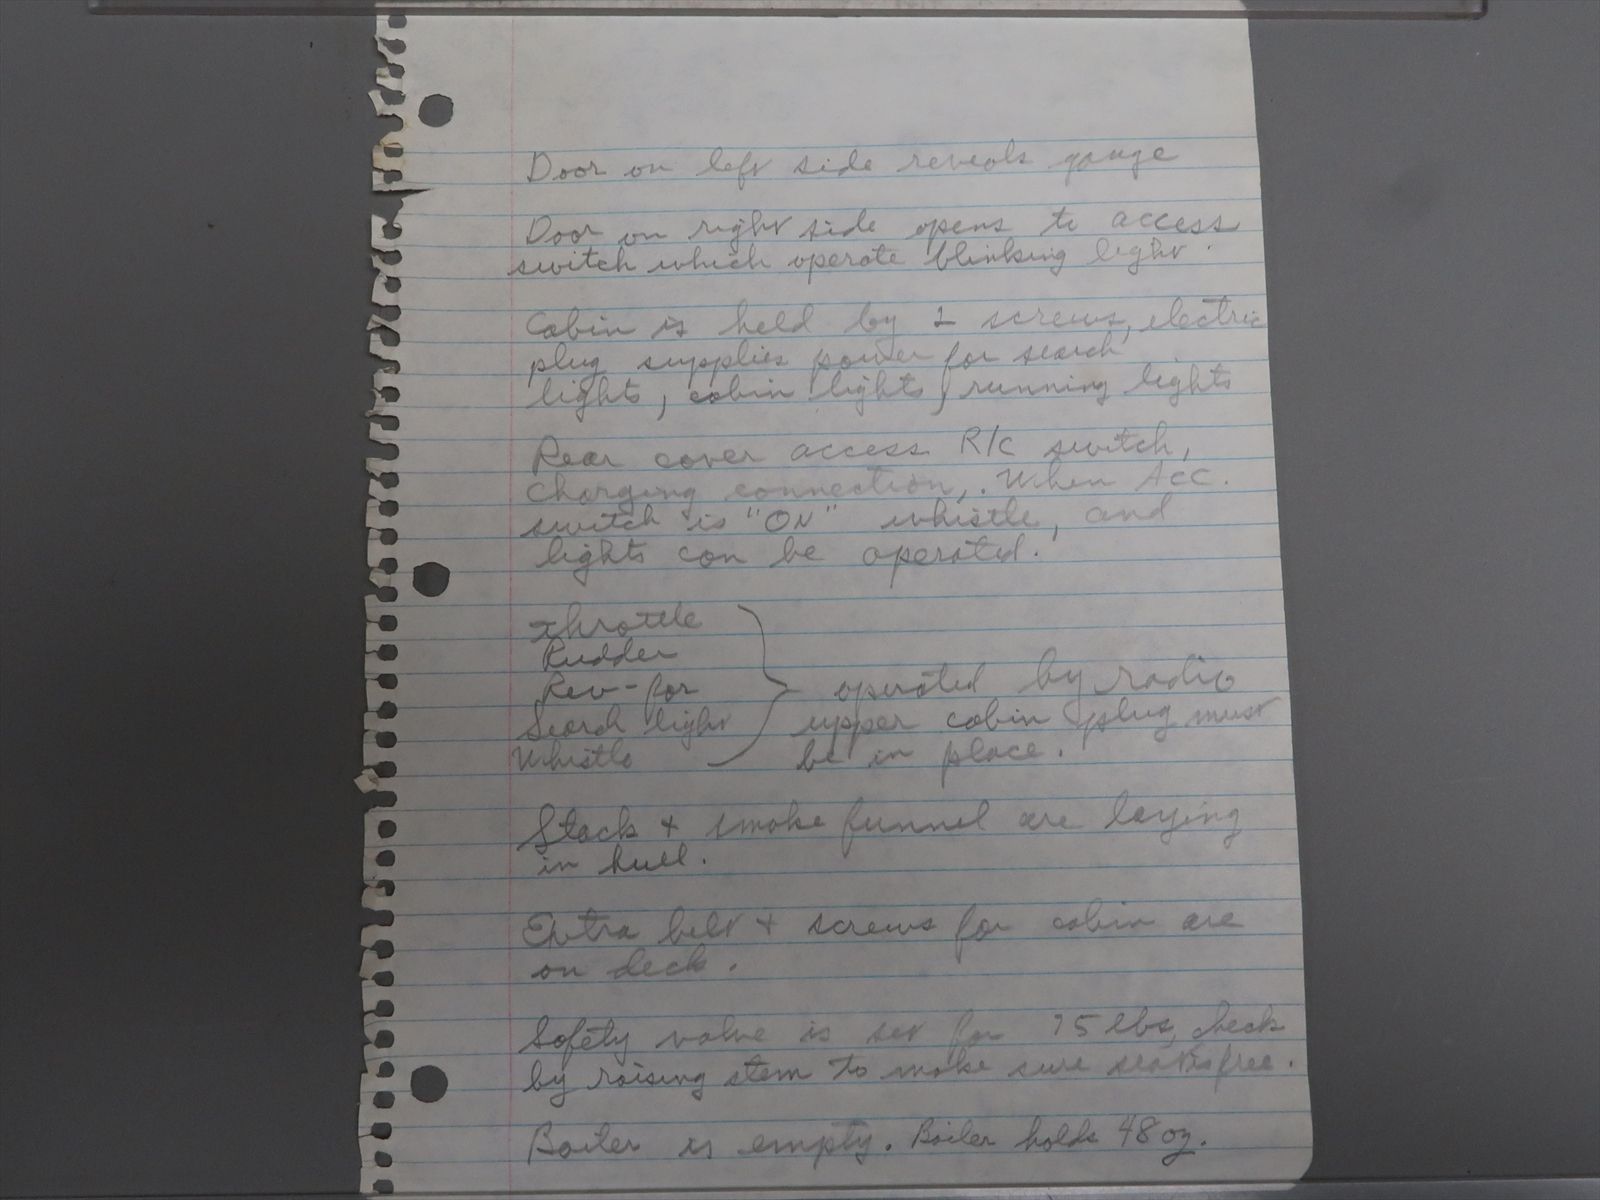 Door on left side reveals gauge
Door on right side opens to access
switch which operate blinking light.
Cabin is held by 2 screws, electric
plug supplies power for search
lights, cabin lights, running lights
Rear cover access R/C switch,
charging connection,. When ACC.
switch is "ON" whistle, and
lights can be operated.
Throttle
Rudder
Rev-for
Search light
Whistle
operated by radio
upper cabin plug must
be in place.
Stack + smoke funnel are laying
in hull.
Extra belt + screws for cabin are
on deck.
Safety valve is set for 75 lbs, check
by raising stem to make sure seat is free.
Boiler is empty. Boiler holds 48 oz.